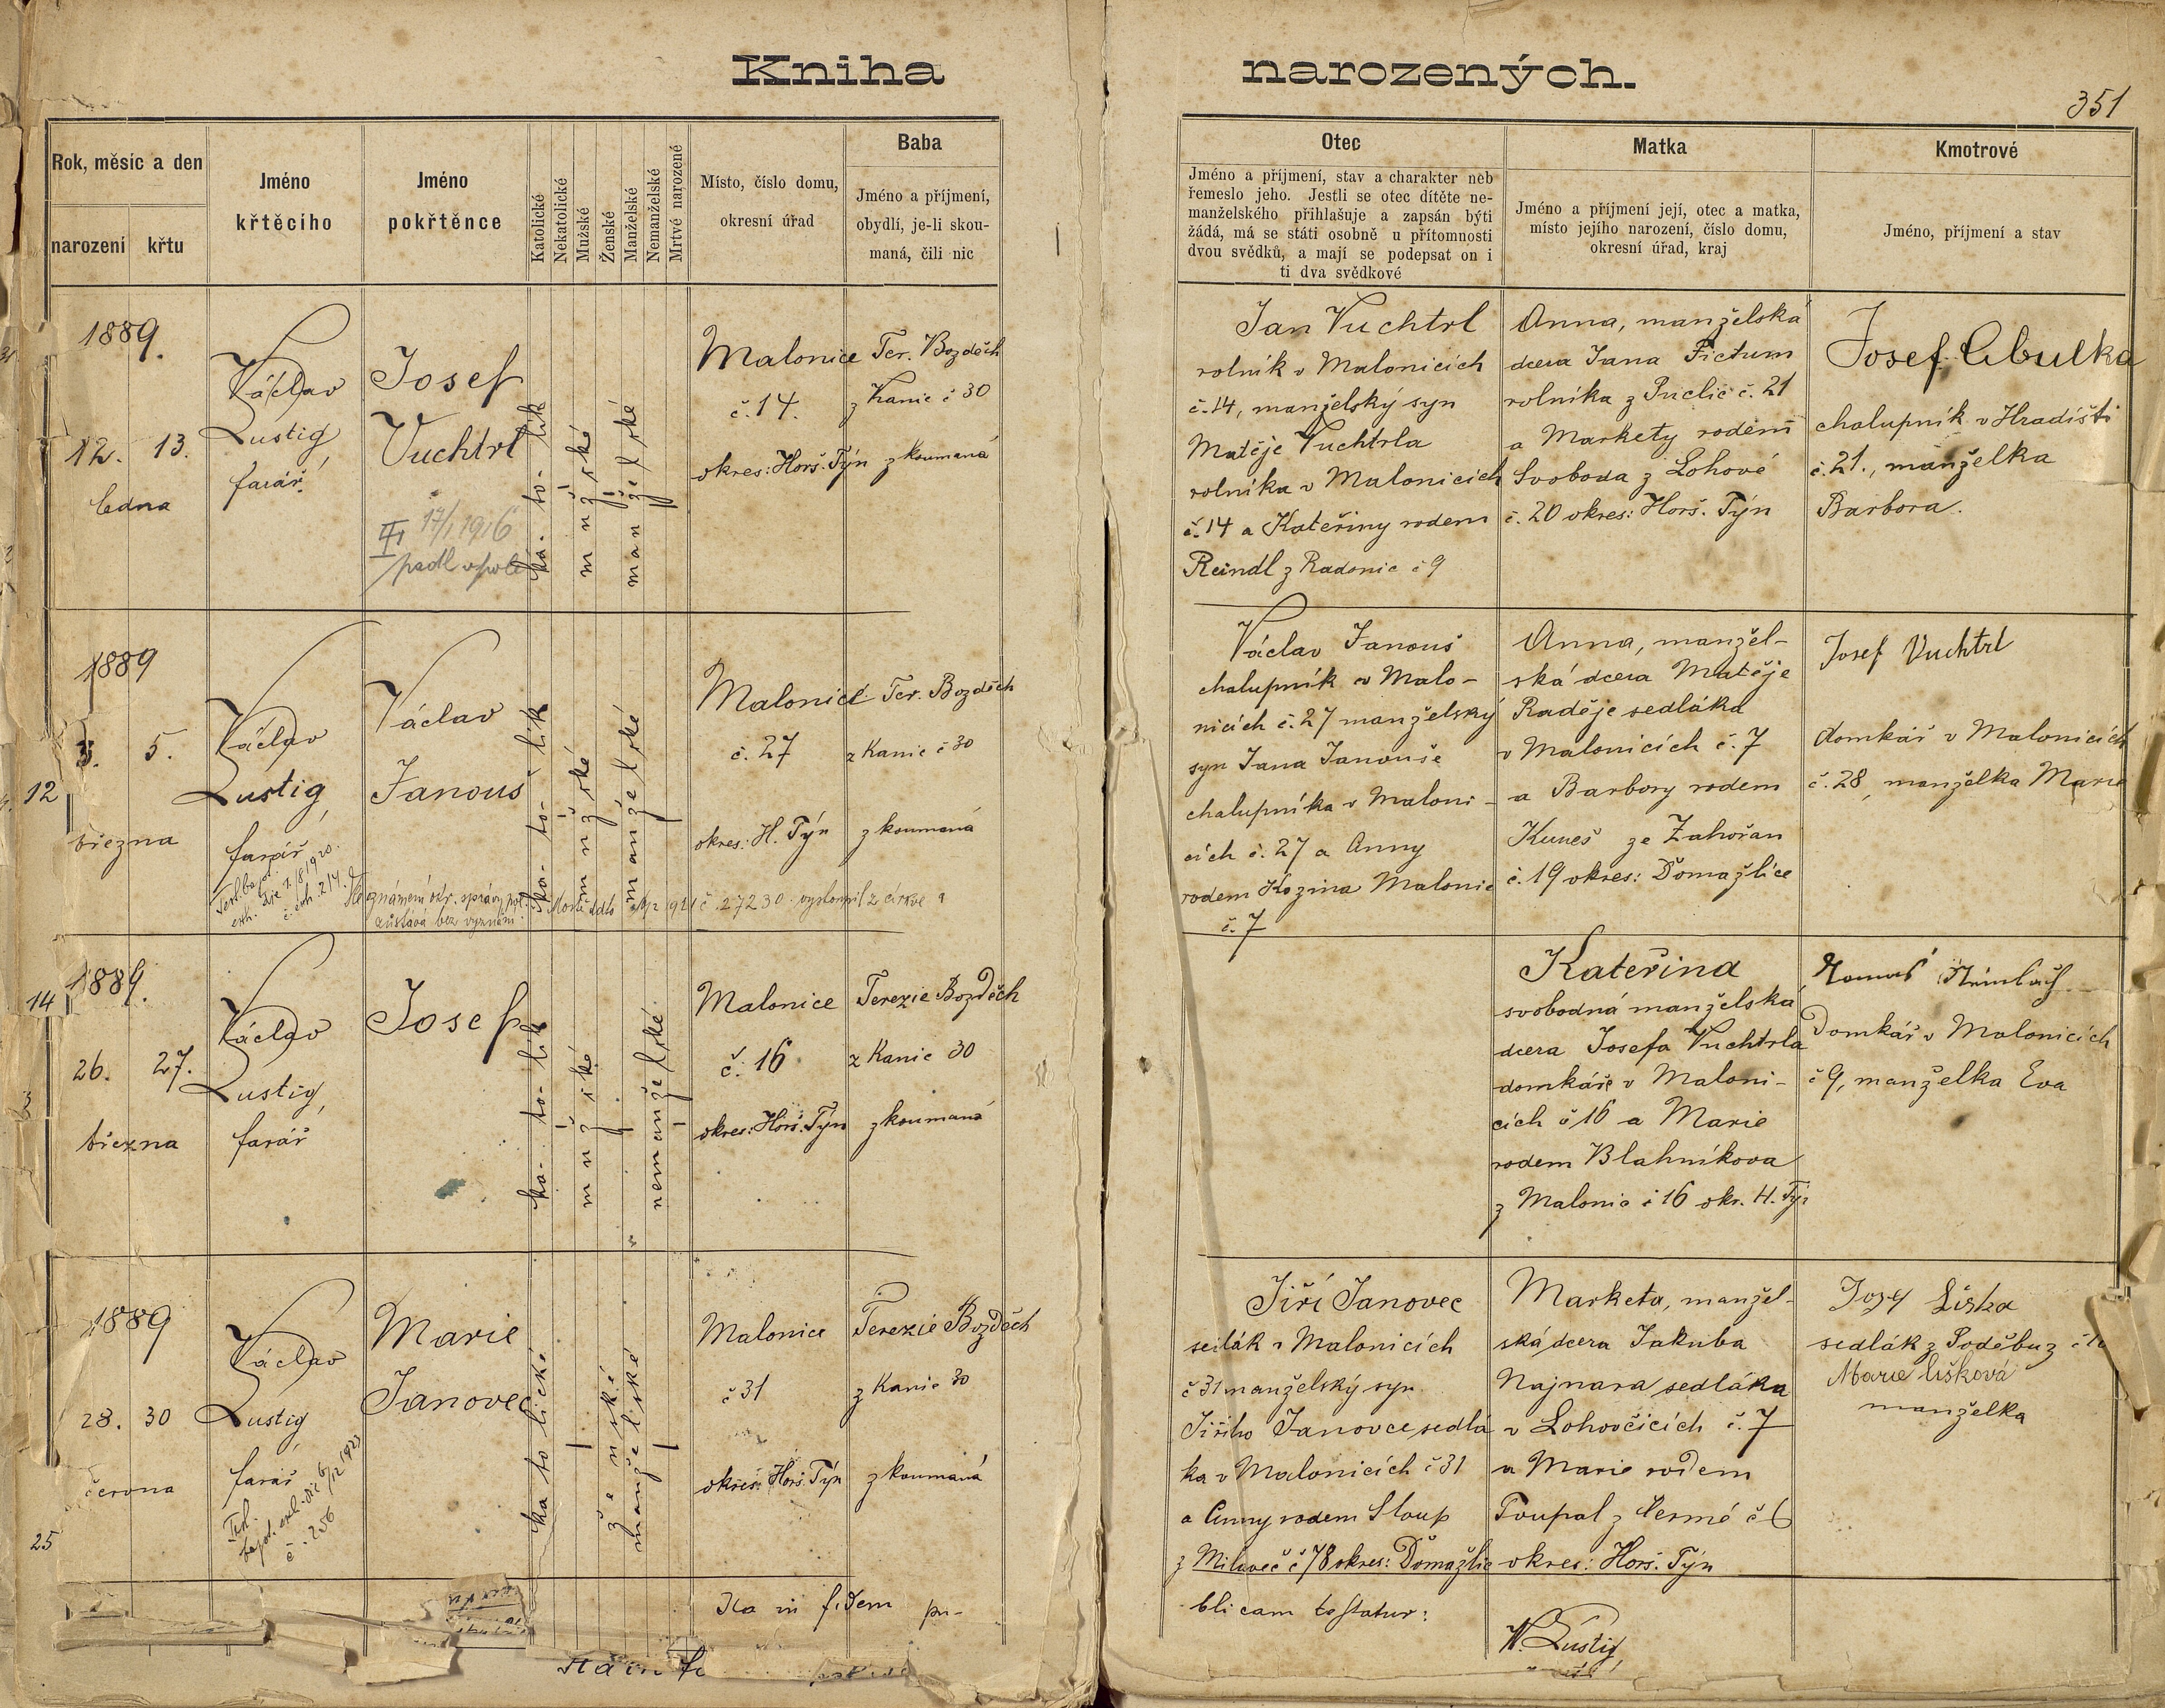 Kniha narozených.
351
Rok, měsíc a den
narození
křtu
Jméno
křtěcího
Jméno
pokřtěnce
Katolické
Nekatolické
Mužské
Ženské
Manželské
Nemanželské
Mrtvé narozené
Místo, číslo domu,
okresní úřad
Baba
Jméno a příjmení,
obydlí, je-li skou-
maná, čili nic
Otec
Jméno a příjmení, stav a charakter neb
řemeslo jeho. Jestli se otec dítěte ne-
manželského přihlašuje a zapsán býti
žádá, má se státi osobně u přítomnosti
dvou svědků, a mají se podepsat on i
ti dva svědkové
Matka
Jméno a příjmení její, otec a matka,
místo jejího narození, číslo domu,
okresní úřad, kraj
Kmotrové
Jméno, příjmení a stav
1889.
12. 13.
ledna
Václav
Lustig,
farář.
Josef
Vuchtrl
17/1 1916
padl v poli
ka- to- lik
mužské
manželské
Malonice
č. 14.
okres: Horš. Týn
Ter. Bozděch
z Kanic č 30
zkoumaná
Jan Vuchtrl
rolník v Malonicích
č. 14, manželský syn
Matěje Vuchtrla
rolníka v Malonicích
č. 14 a Kateřiny rodem
Reindl z Radonic č 9
Anna, manželská
dcera Jana Fictum
rolníka z Puclic č. 21
a Markety rodem
Svoboda z Lohové
č. 20 okres: Horš. Týn
Josef Cibulka
chalupník v Hradišti
č. 21., manželka
Barbora.
1889
3. 5.
března
12
Václav
Lustig,
farář
Václav
Janouš
ka- to- lik
mužské
manželské
Malonice
č. 27
okres: H. Týn
Ter. Bozděch
z Kanic č 30
zkoumaná
č. 27230 vystoupil z církve a
zůstává bez vyznání
Václav Janouš
chalupník v Malo-
nicích č. 27 manželský
syn Jana Janouše
chalupníka v Maloni-
cích č. 27 a Anny
rodem Kozina Malonic
č. 7
Anna, manžel-
ská dcera Matěje
Raděje sedláka
v Malonicích č. 7
a Barbory rodem
Kuneš ze Zahořan
č. 19 okres: Domažlice
Josef Vuchtrl
domkář v Malonicích
č. 28, manželka Marie
14
1889.
26. 27.
března
Václav
Lustig,
farář
Josef
ka- to- lik
mužské
nemanželské
Malonice
č. 16
okres: Horš. Týn
Terezie Bozděch
z Kanic 30
zkoumaná
Kateřina
svobodná manželská
dcera Josefa Vuchtrla
domkáře v Maloni-
cích č 16 a Marie
rodem Blahníkova
z Malonic č 16 okr. H. Týn
Domkář v Malonicích
č 9, manželka Eva
1889
28. 30
června
25
Václav
Lustig
farář
č. 256
Marie
Janovec
katolické
ženské
manželské
Malonice
č 31
okres: Horš. Týn
Terezie Bozděch
z Kanic 30
zkoumaná
Jiří Janovec
sedlák v Malonicích
č 31 manželský syn
Jiřího Janovce sedlá
ka v Malonicích č 31
a Anny rodem Sloup
z Milaveč č 78 okres: Domažlic
Marketa, manžel-
ská dcera Jakuba
Najmara sedláka
v Lohovčicích č. 7
a Marie rodem
Toupal z Neřmé č 6
okres: Horš. Týn
Josef Liška
sedlák z Poděbuz
Marie Lišková
manželka
Ita in fidem pu-
blicam testatur:
W. Lustig,